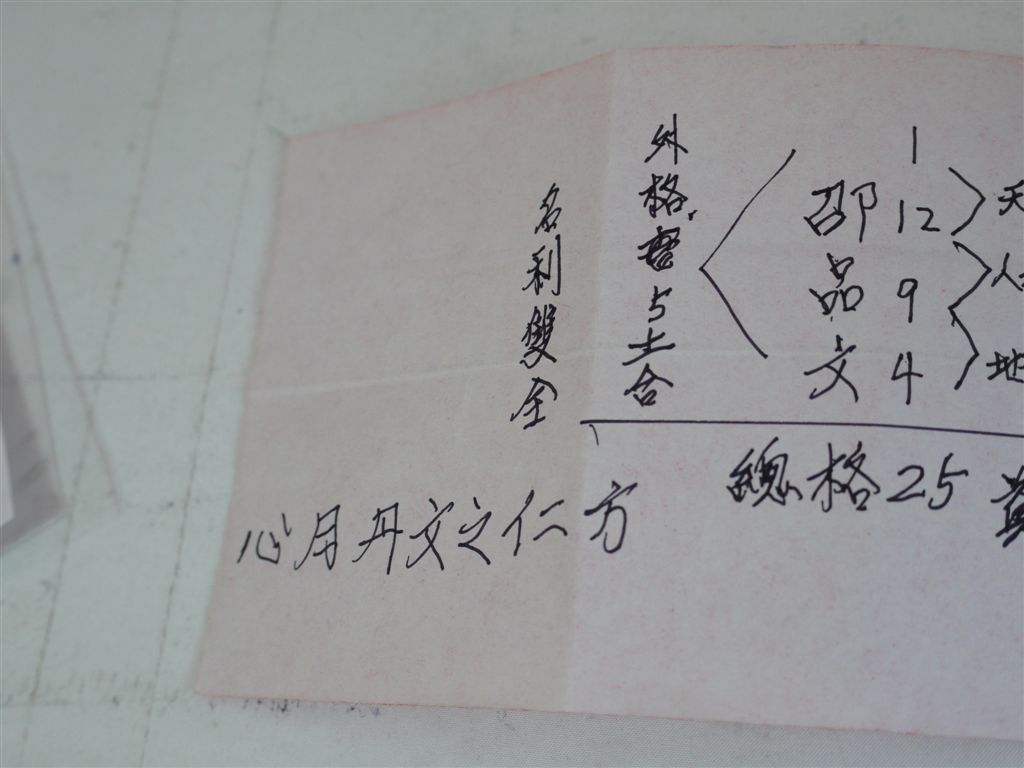 1
邵 12 天
品 9 人
文 4 地
外格5土合
名利雙全
總格25
心月丹文之仁方